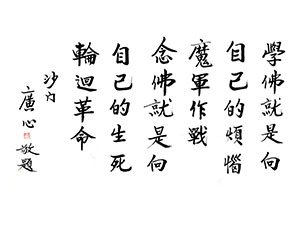 學佛就是向
自己的煩惱
魔軍作戰
念佛就是向
自己的生死
輪迴革命
沙門
廣心
敬題